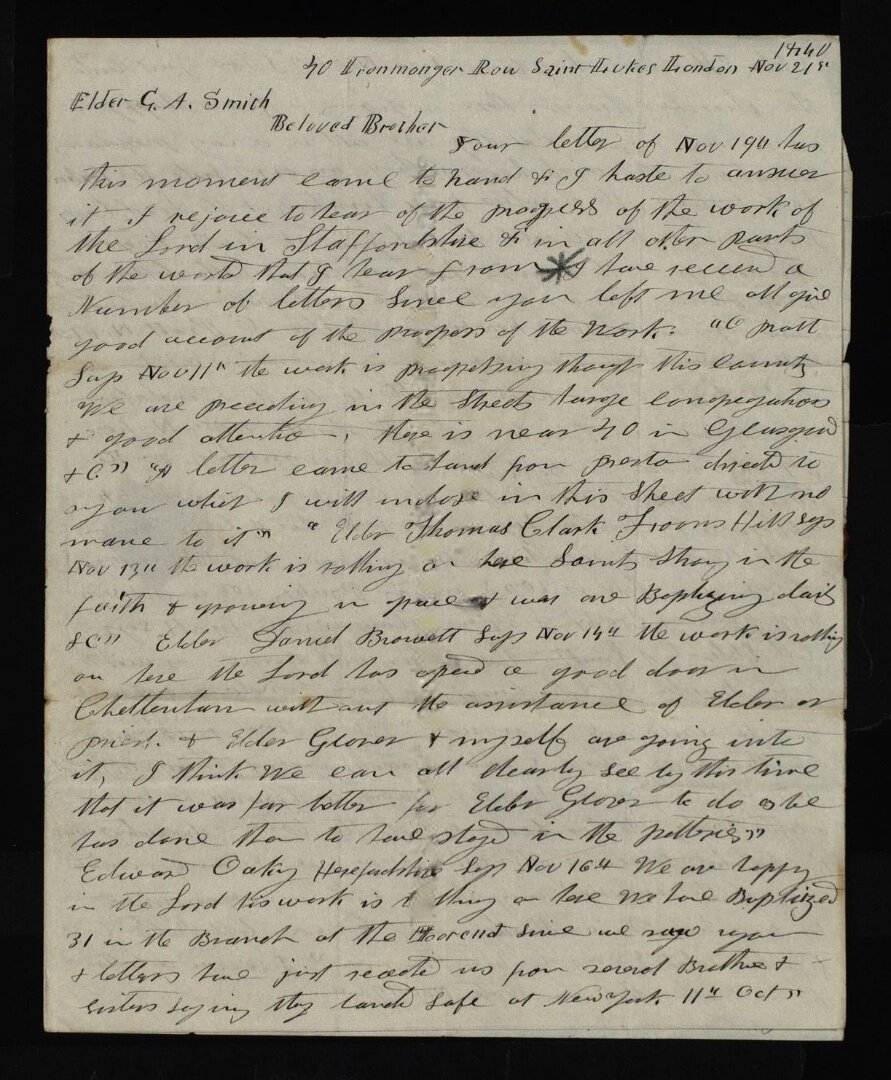 1840
40 Ironmonger Row Saint Lukes London Nov 21st
Elder G. A. Smith
Beloved Brother
Your letter of Nov 19th has
this moment came to hand & I haste to answer
it I rejoice to hear of the progress of the work of
the Lord in Staffordshire & in all other parts
of the world that I hear from I have received a
Number of letters since you left me all give
good account of the progress of the work. "O Pratt
Says Nov 11th the work is progressing through this county
We are preaching in the Streets large congregations
& good attention, there is near 40 in Glasgow
&c" A letter came to hand from Preston directed to
you which I will inclose in this Sheet with no
name to it" "Elder Thomas Clark Frooms Hill says
Nov 13th the work is rolling on here Saints Strong in the
faith & growing in grace & we are Baptizing daily
&c" Elder Daniel Browett Says Nov 14th the work is rolling
on here the Lord has opend a good door in
Cheltenham without the assistance of Elder or
priest. & Elder Glover & myself are going into
it, I think We can all clearly see by this time
that it was far better for Elder Glover to do as he
has done than to have stayed in the potteries"
Edward Oakey Herefordshire Says Nov 16th We are happy
in the Lord his work is rolling on here We have Baptized
31 in the Branch at the since we saw you
& letters have just reached us from several Brothers &
Sisters saying they landed Safe at New York 11th Oct"